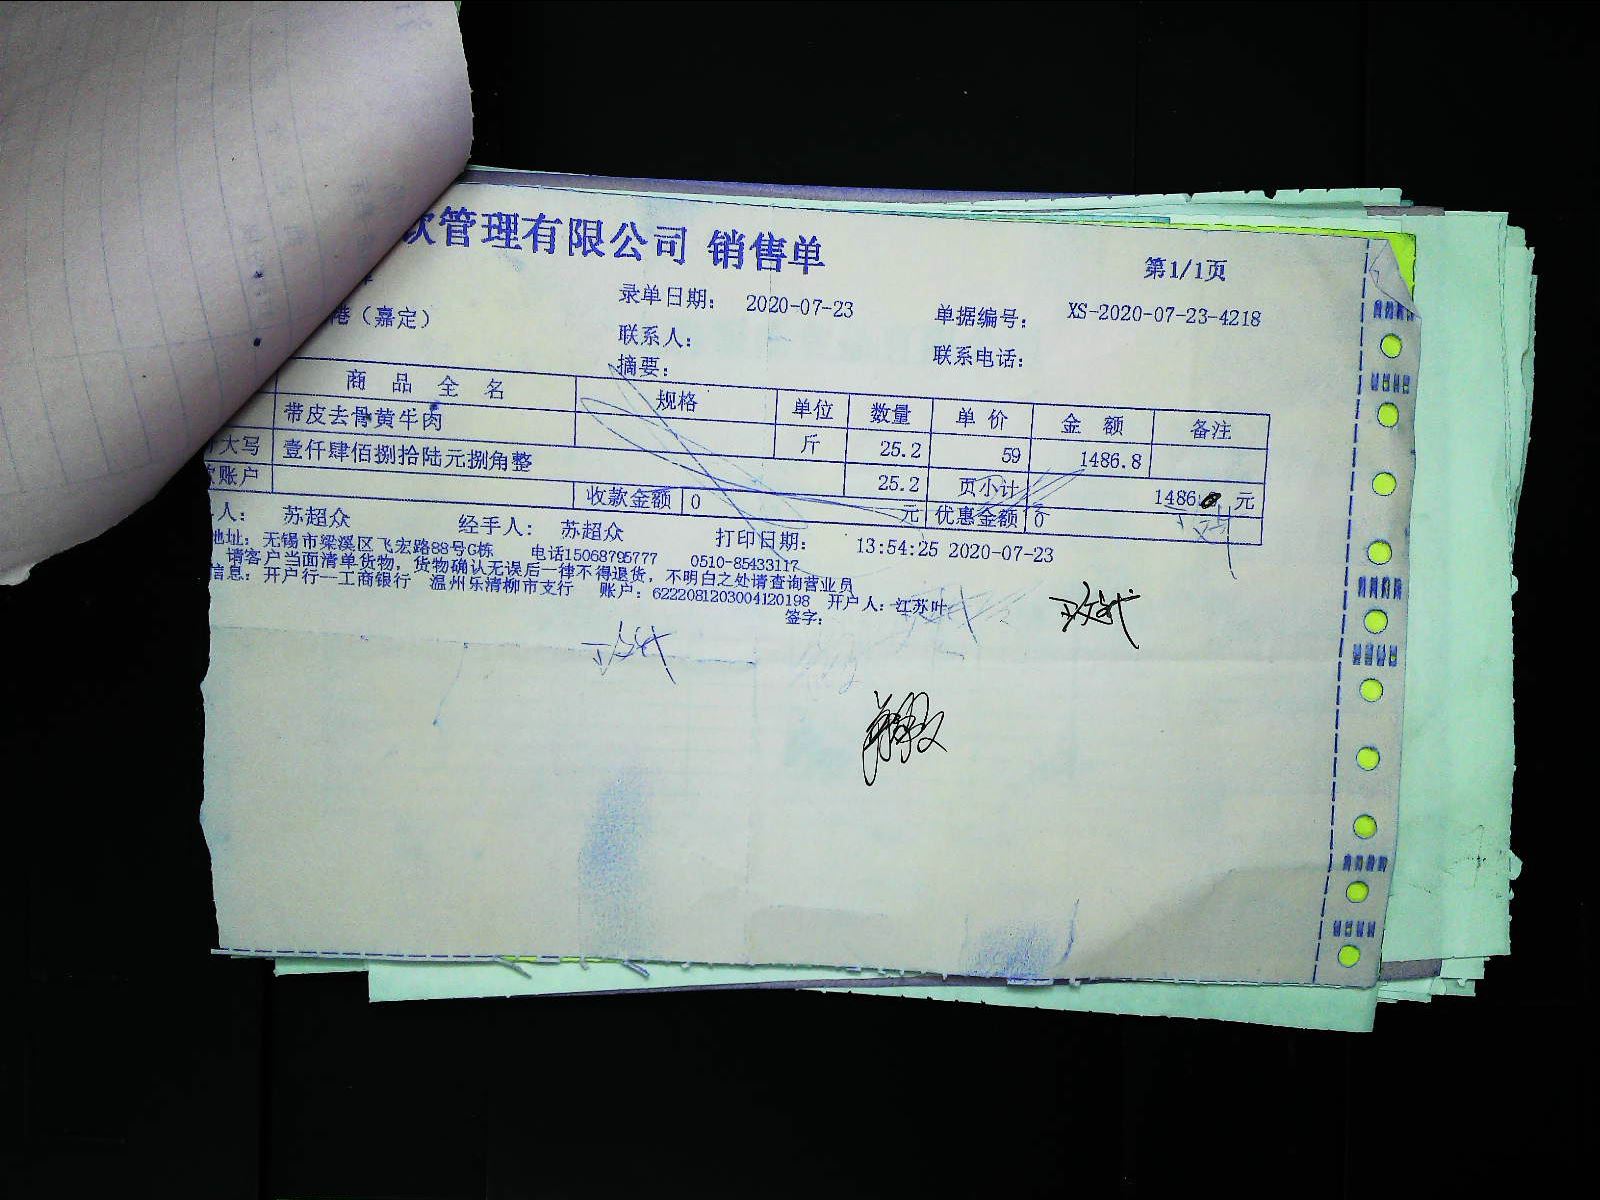 饮管理有限公司 销售单
第1/1页
港（嘉定）
录单日期： 2020-07-23
单据编号： XS-2020-07-23-4218
联系人：
联系电话：
摘要：
商 品 全 名 规格 单位 数量 单 价 金 额 备注
带皮去骨黄牛肉 斤 25.2 59 1486.8
大写 壹仟肆佰捌拾陆元捌角整 25.2 页小计 1486. 元
账户 收款金额 0 元 优惠金额 0
人： 苏超众 经手人： 苏超众 打印日期： 13:54:25 2020-07-23
地址：无锡市梁溪区飞宏路88号G栋 电话15068795777 0510-85433117
请客户当面清单货物，货物确认无误后一律不得退货，不明白之处请查询营业员
信息：开户行—工商银行 温州乐清柳市支行 账户：6222081203004120198 开户人：江苏叶
签字：